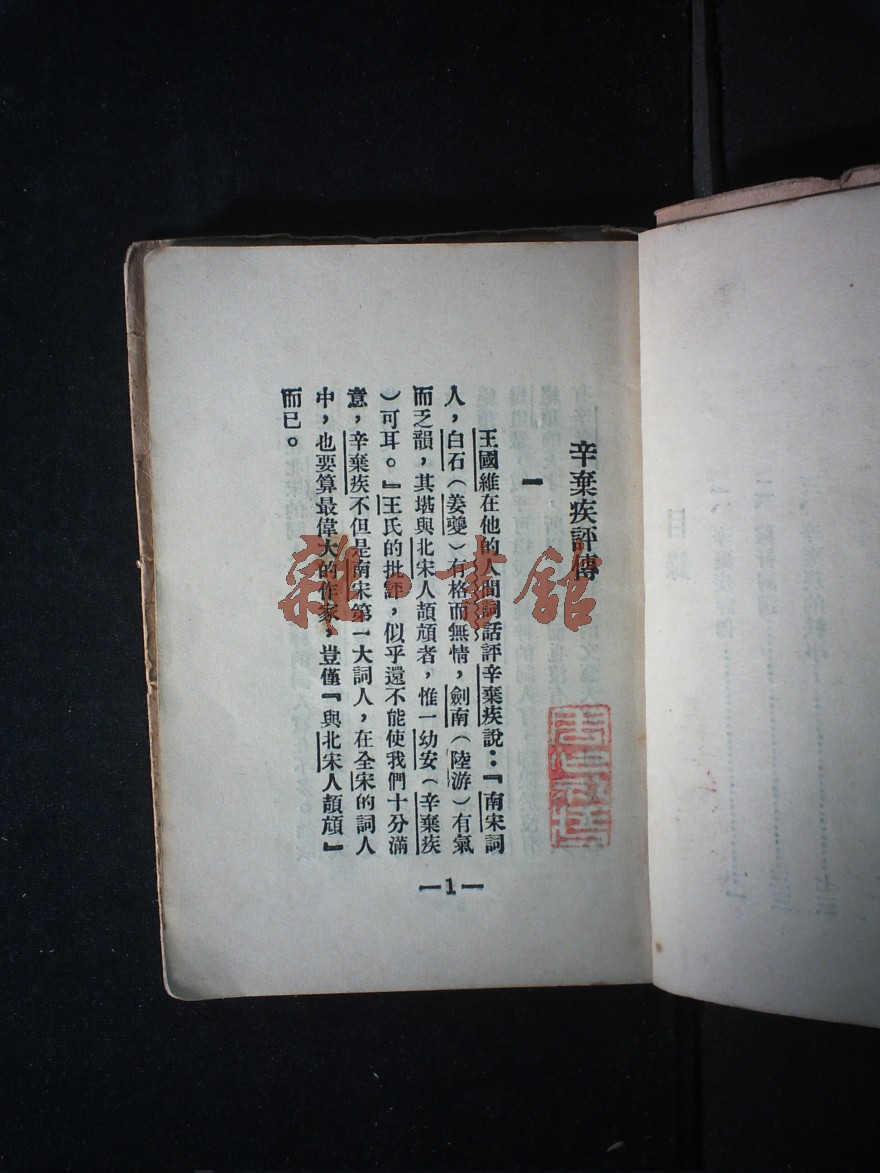 辛棄疾評傳
一
王國維在他的人間詞話評辛棄疾說：『南宋詞
人，白石（姜夔）有格而無情，劍南（陸游）有氣
而乏韻，其堪與北宋人頡頏者，惟一幼安（辛棄疾
）可耳。』王氏的批評，似乎還不能使我們十分滿
意，辛棄疾不但是南宋第一大詞人，在全宋的詞人
中，也要算最偉大的作家，豈僅『與北宋人頡頏』
而已。
—1—
雜·書館
目錄